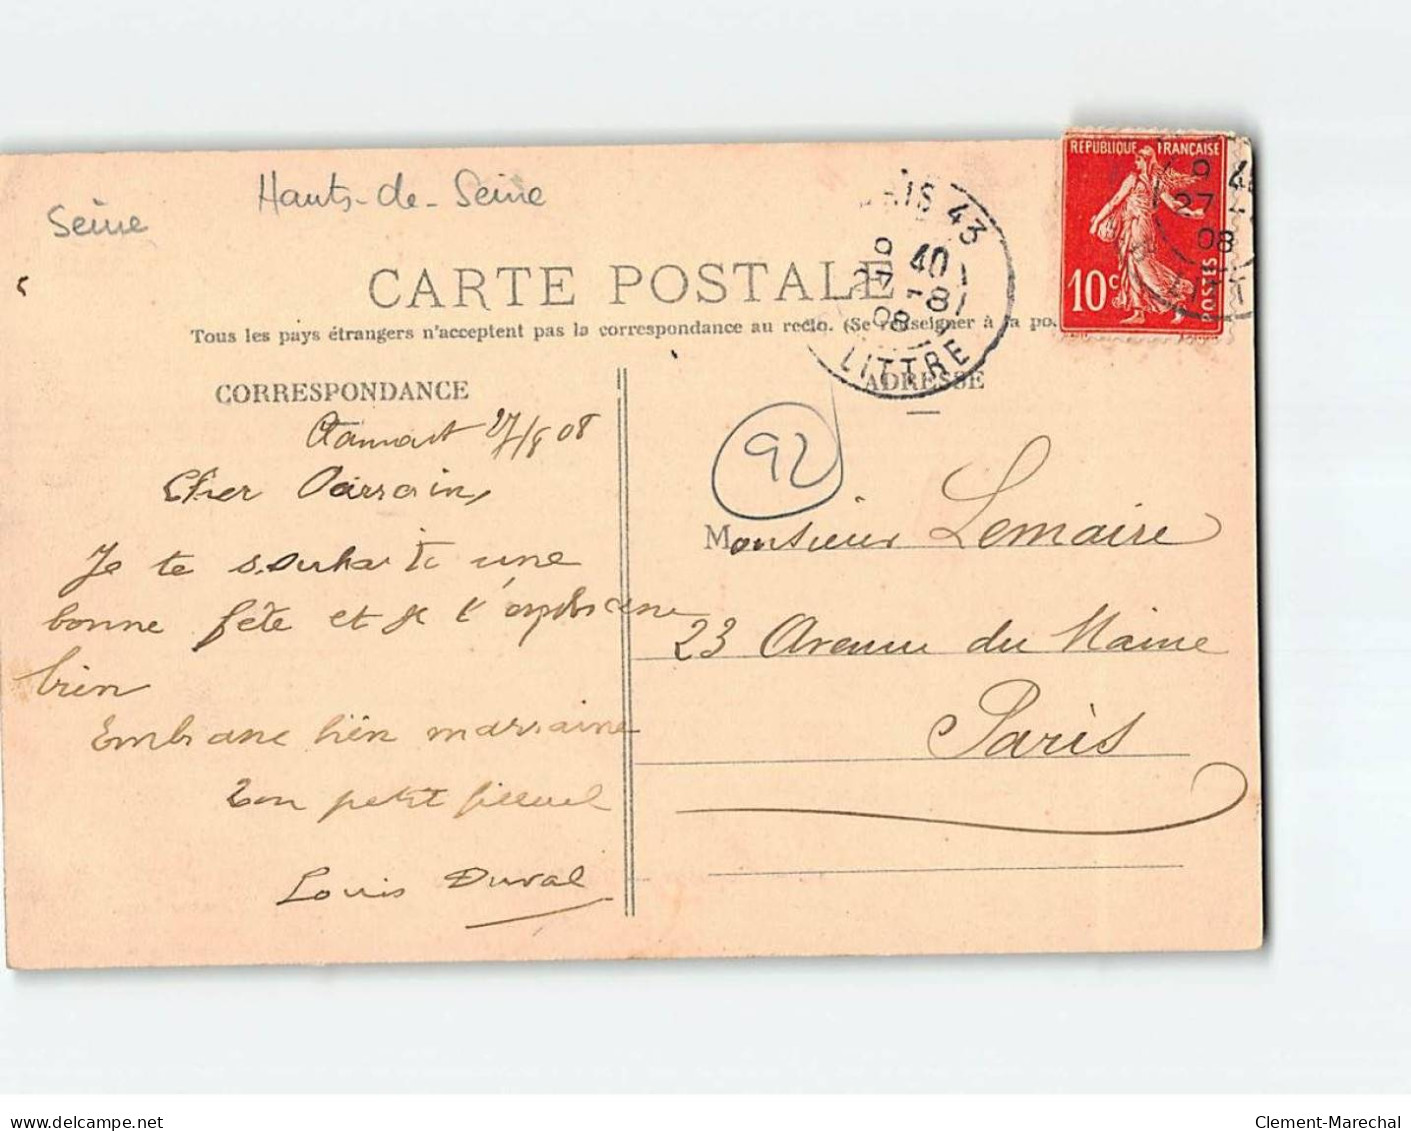 Hauts-de-Seine
Seine
CARTE POSTALE
Tous les pays étrangers n'acceptent pas la correspondance au recto. (Se renseigner à la po
RÉPUBLIQUE FRANÇAISE
10c
POSTES
PARIS 43
9 40
27 -8
08
LITTRE
9 40
27
08
CORRESPONDANCE
27/8 08
Cher Parrain,
Je te souhaite une
bonne fête et je t'embrasse
bien
Embrasse bien marraine
Ton petit filleul
Louis Duval
ADRESSE
92
Monsieur Lemaire
23 Avenue du Maine
Paris
delcampe.net
Clement-Marechal